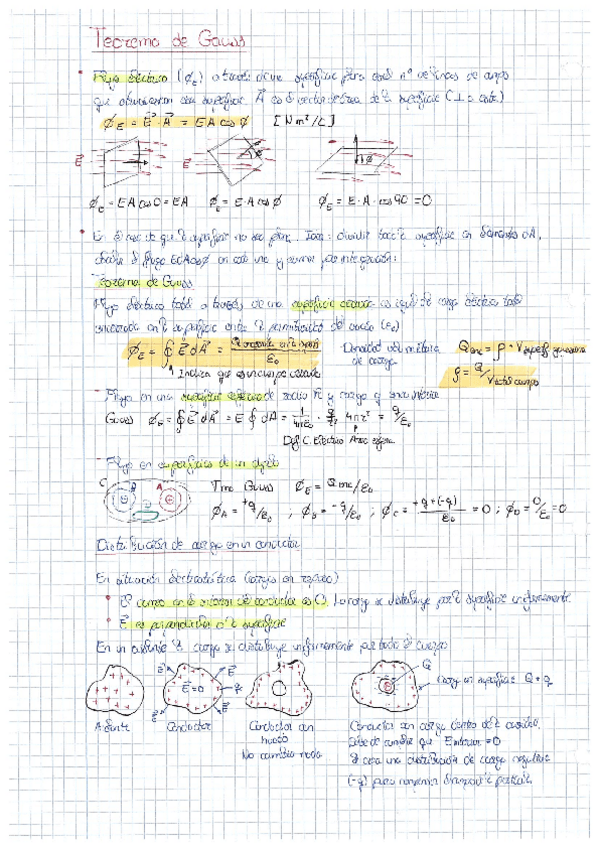 Teorema de Gauss
• Flujo eléctrico (ϕE) a través de una superficie nº de líneas de campo
que atraviesan esa superficie. A⃗ es el vector de área de la superficie (⊥ a este)
ϕE = E⃗ · A⃗ = E A cos ϕ [N m²/C]
E⃗ E⃗ ϕ
ϕE = E A cos 0 = E A ϕE = E · A cos ϕ ϕE = E · A · cos 90 = 0
• En el caso de que la superficie no sea plana, dividir la superficie en elementos dA,
el flujo E dA cos ϕ en cada uno y sumar por integración:
Teorema de Gauss
Flujo eléctrico total a través de una superficie cerrada es igual de carga eléctrica total
encerrada en la superficie entre la permitividad del vacío (ε₀)
ϕE = ∮ E⃗ dA⃗ = / ε₀ Densidad volumétrica de carga Qenc = ρ · V superf gaussiana
↑ Indica que es un cuerpo cerrado ρ = Q/V
- Flujo en una superficie esférica de radio r y carga q
Gauss ϕE = ∮ E⃗ dA⃗ = E ∮ dA = 1/4πε₀ · q/r² 4πr² = q/ε₀
Def C. Eléctrico Área esfera
- Flujo en superficies de un dipolo
C B A D Tma Gauss ϕE = Qenc/ε₀
ϕA = +q/ε₀ ; ϕB = -q/ε₀ ; ϕC = +q+(-q)/ε₀ = 0 ; ϕD = 0/ε₀ = 0
Distribución de carga en un conductor
En situación electrostática (cargas en reposo)
• El campo en el interior del conductor es 0, la carga se distribuye por la superficie uniformemente
• E⃗ es perpendicular a la superficie
En un aislante la carga se distribuye uniformemente por todo el cuerpo
E⃗ E⃗=0 E⃗ E⃗ Q Carga en superficie Q + q
Aislante Conductor Conductor con hueco Conductor con carga dentro de la cavidad.
No cambia nada que E interior = 0
una distribución de carga negativa
(-q) para compensar